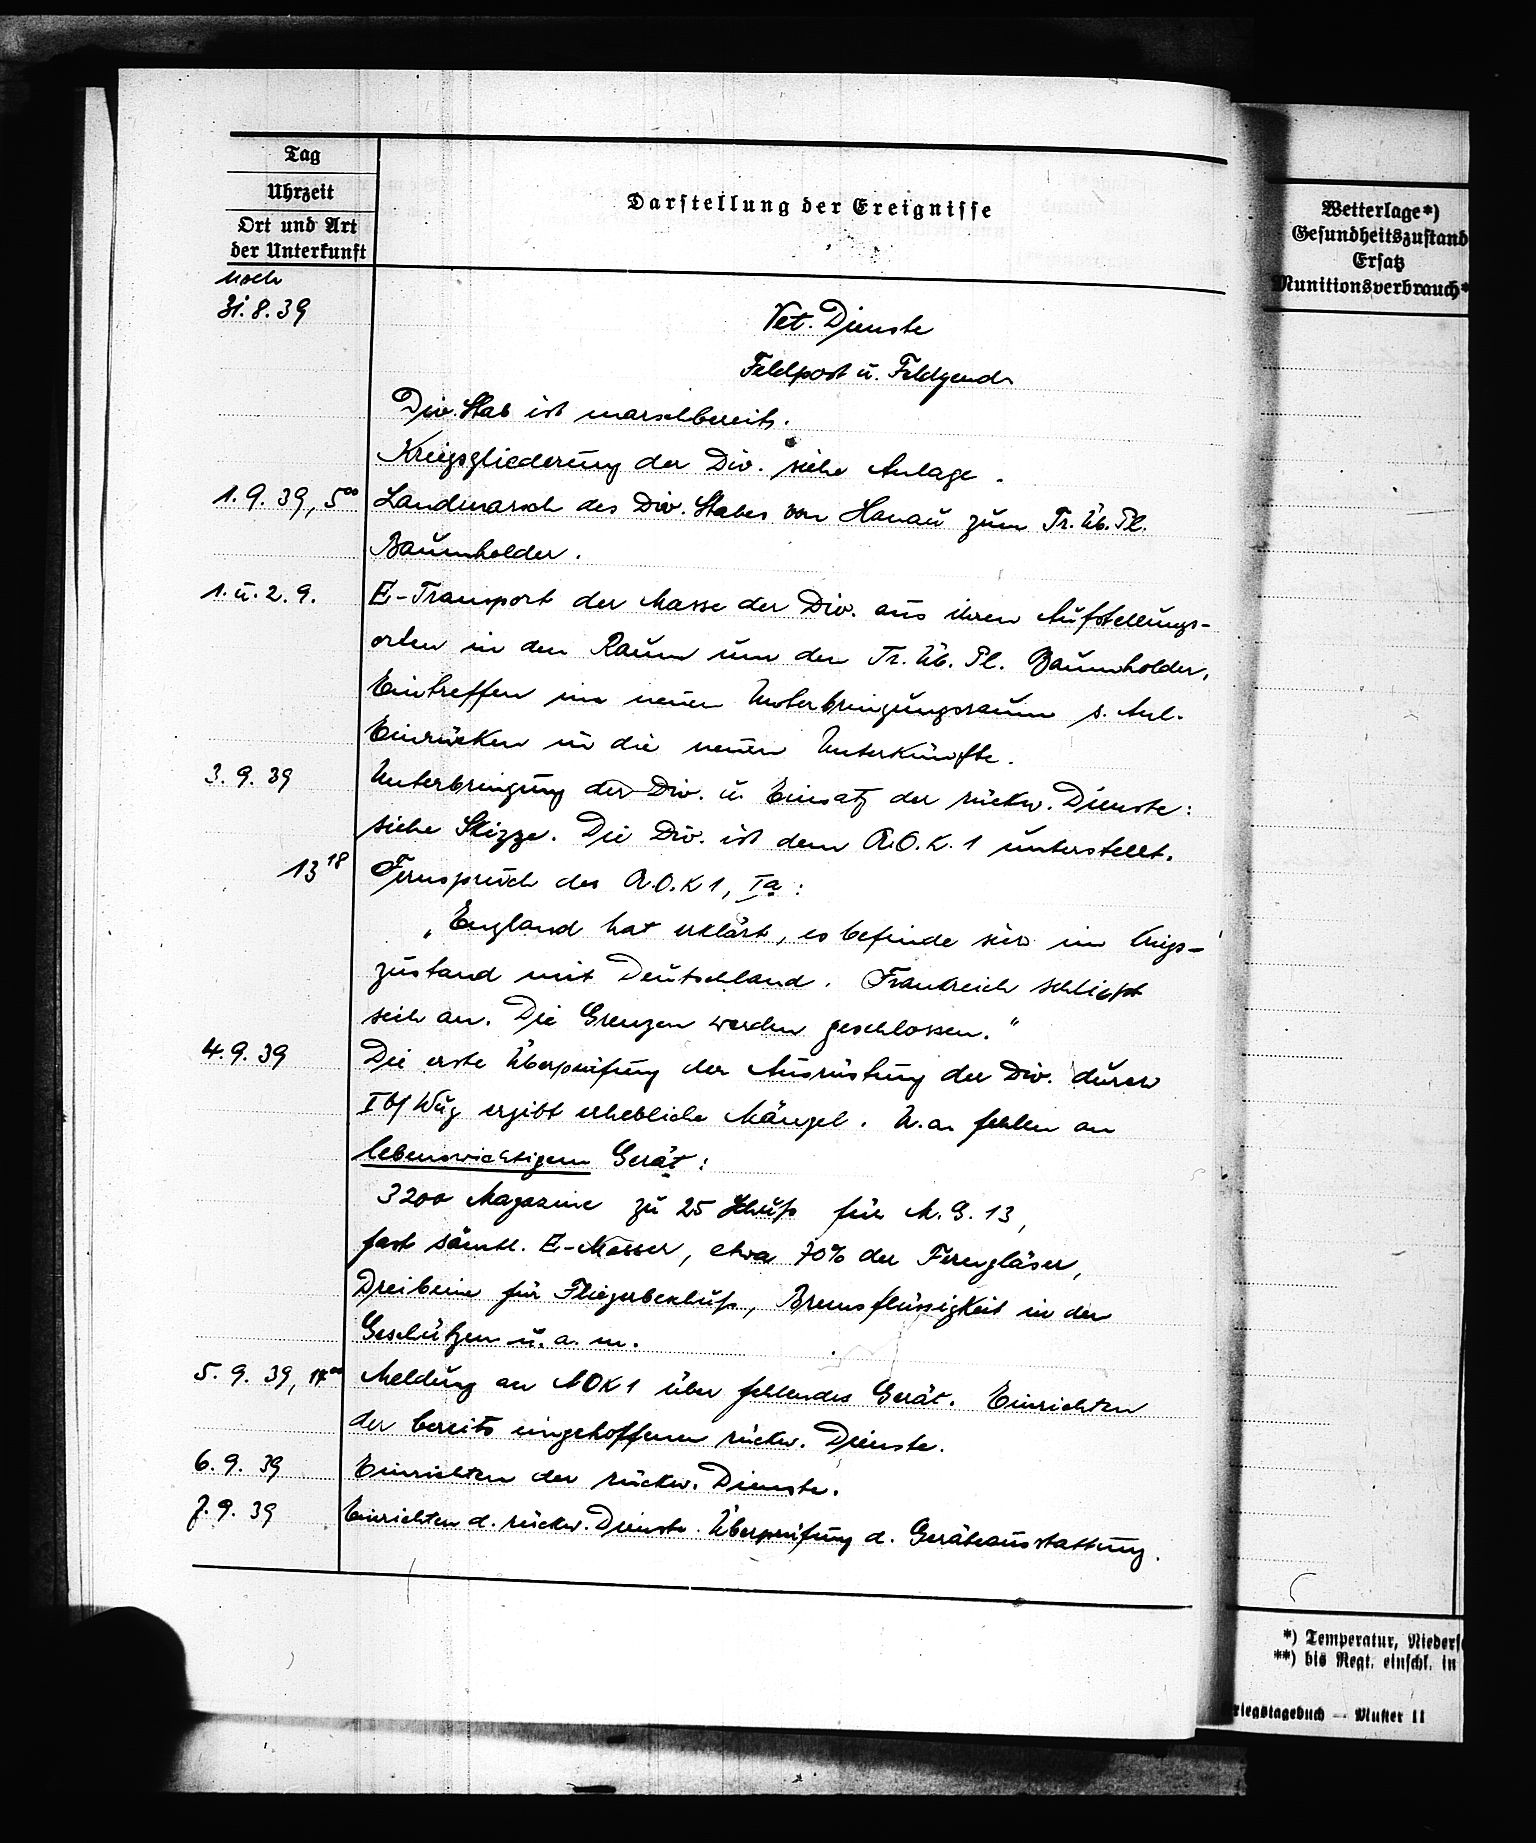 Tag
Uhrzeit
Ort und Art
der Unterkunft
Darstellung der Ereignisse
noch
31.8.39
Vet. Dienste
Feldpost u. Feldgend.
Div. Stab ist marschbereit.
Kriegsgliederung der Div. siehe Anlage.
1.9.39, 5⁰⁰ Landmarsch des Div. Stabes von Hanau zum Tr. Üb. Pl.
Baumholder.
1. u. 2.9. E-Transport der Masse der Div. aus ihren Aufstellungs-
orten in den Raum um den Tr. Üb. Pl. Baumholder.
Eintreffen im neuen Unterbringungsraum s. Anl.
Einrücken in die neuen Unterkünfte.
3.9.39 Unterbringung der Div. u. Einsatz der rückw. Dienste:
siehe Skizze. Die Div. ist dem A.O.K. 1 unterstellt.
13¹⁸ Fernspruch des A.O.K 1, Ia:
„England hat erklärt, es befinde sich im Kriegs-
zustand mit Deutschland. Frankreich schließt
sich an. Die Grenzen werden geschlossen."
4.9.39 Die erste Überprüfung der Ausrüstung der Div. durch
Ib/WuG ergibt erhebliche Mängel. U.a. fehlen an
lebenswichtigem Gerät:
3200 Magazine zu 25 Schuß für M.G. 13,
fast sämtl. E-Messer, etwa 70% der Ferngläser,
Dreibeine für Fliegerbeschuß, Bremsflüssigkeit in den
Geschützen u.a.m.
5.9.39, Meldung an AOK 1 über fehlendes Gerät. Einrichten
der bereits eingetroffenen rückw. Dienste.
6.9.39 Einrichten der rückw. Dienste.
7.9.39 Einrichten d. rückw. Dienste. Überprüfung d. Geräteausstattung.
Wetterlage*)
Gesundheitszustand
Ersatz
Munitionsverbrauch*
*) Temperatur, Nieders
**) bis Regt. einschl. in
riegstagebuch — Muster 11